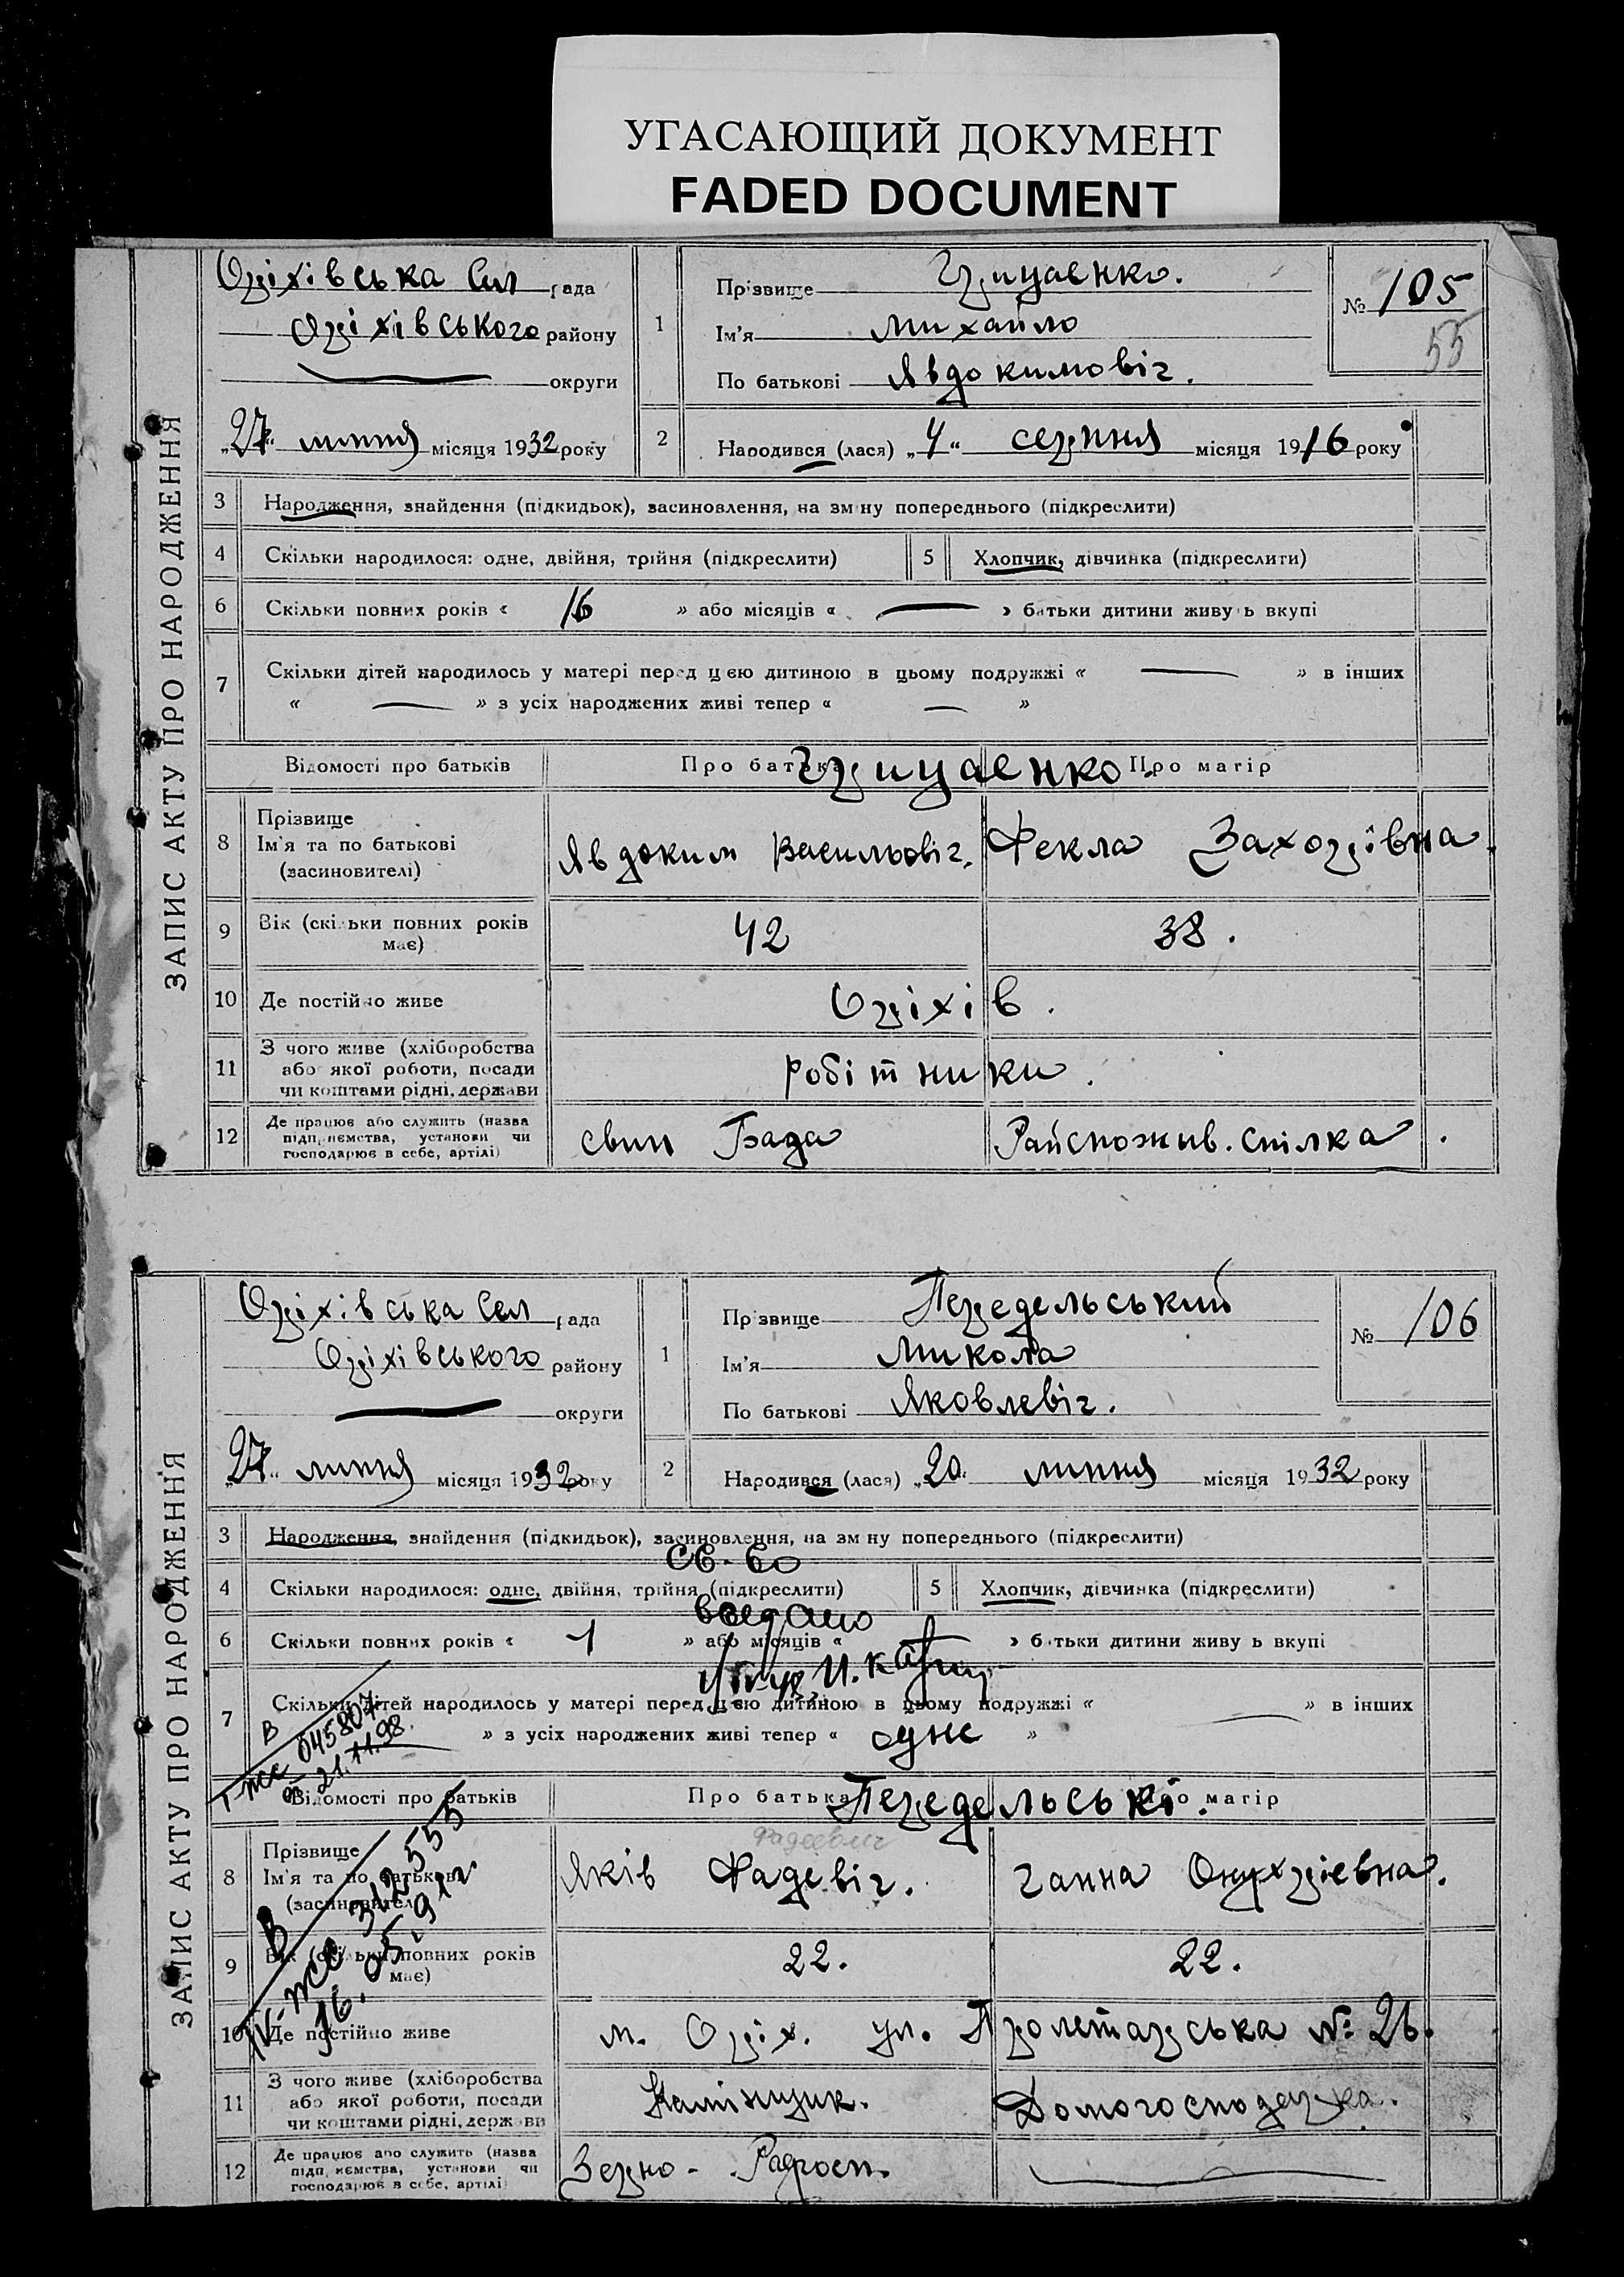 УГАСАЮЩИЙ ДОКУМЕНТ
FADED DOCUMENT
ЗАПИС АКТУ ПРО НАРОДЖЕННЯ
Оріхівська Сел рада
Оріхівського району
округи
„27“ липня місяця 1932 року
1
Прізвище Грицаенко.
Ім'я Михайло
По батькові Явдокимовіч.
№ 105
55
2
Народився (лася) „4“ серпня місяця 1916 року
3 Народження, знайдення (підкидьок), засиновлення, на зміну попереднього (підкреслити)
4 Скільки народилося: одне, двійня, трійня (підкреслити)
5 Хлопчик, дівчинка (підкреслити)
6 Скільки повних років « 16 » або місяців « — » батьки дитини живуть вкупі
7 Скільки дітей народилось у матері перед цією дитиною в цьому подружжі « — » в інших
« — » з усіх народжених живі тепер « — »
Відомості про батьків Про батька Про матір
Грицаенко
8 Прізвище
Ім'я та по батькові
(засиновителі)
Явдоким Васильовіч. Фекла Захорівна.
9 Вік (скільки повних років має)
42 38.
10 Де постійно живе Оріхів.
11 З чого живе (хліборобства
або якої роботи, посади
чи коштами рідні, держави
робітники.
12 Де працює або служить (назва
підприємства, установи чи
господарює в себе, артілі)
свин База Райспожив. спілка.
ЗАПИС АКТУ ПРО НАРОДЖЕННЯ
Оріхівська Сел рада
Оріхівського району
округи
„27“ липня місяця 1932 року
1
Прізвище Передельський
Ім'я Микола
По батькові Яковлевіч.
№ 106
2
Народився (лася) „20“ липня місяця 1932 року
3 Народження, знайдення (підкидьок), засиновлення, на зміну попереднього (підкреслити)
Св-во
4 Скільки народилося: одне, двійня, трійня (підкреслити)
5 Хлопчик, дівчинка (підкреслити)
6 Скільки повних років « 1 » або місяців « » батьки дитини живуть вкупі
7 Скільки дітей народилось у матері перед цією дитиною в цьому подружжі « — » в інших
» з усіх народжених живі тепер « одне »
В
І-ЖС 045807
21.11.98
Відомості про батьків Про батька Про матір
Передельські.
8 Прізвище
Ім'я та по батькові
(засиновителі)
Фадеевич
Яків Фадевіч. Ганна
В
312555
16.05.91г
9 Вік (скільки повних років має)
22. 22.
10 Де постійно живе м. Оріх. ул. Пролетарська № 26.
11 З чого живе (хліборобства
або якої роботи, посади
чи коштами рідні, держави
Камінщик. Домогосподарка.
12 Де працює або служить (назва
підприємства, установи чи
господарює в себе, артілі)
Зерно- —